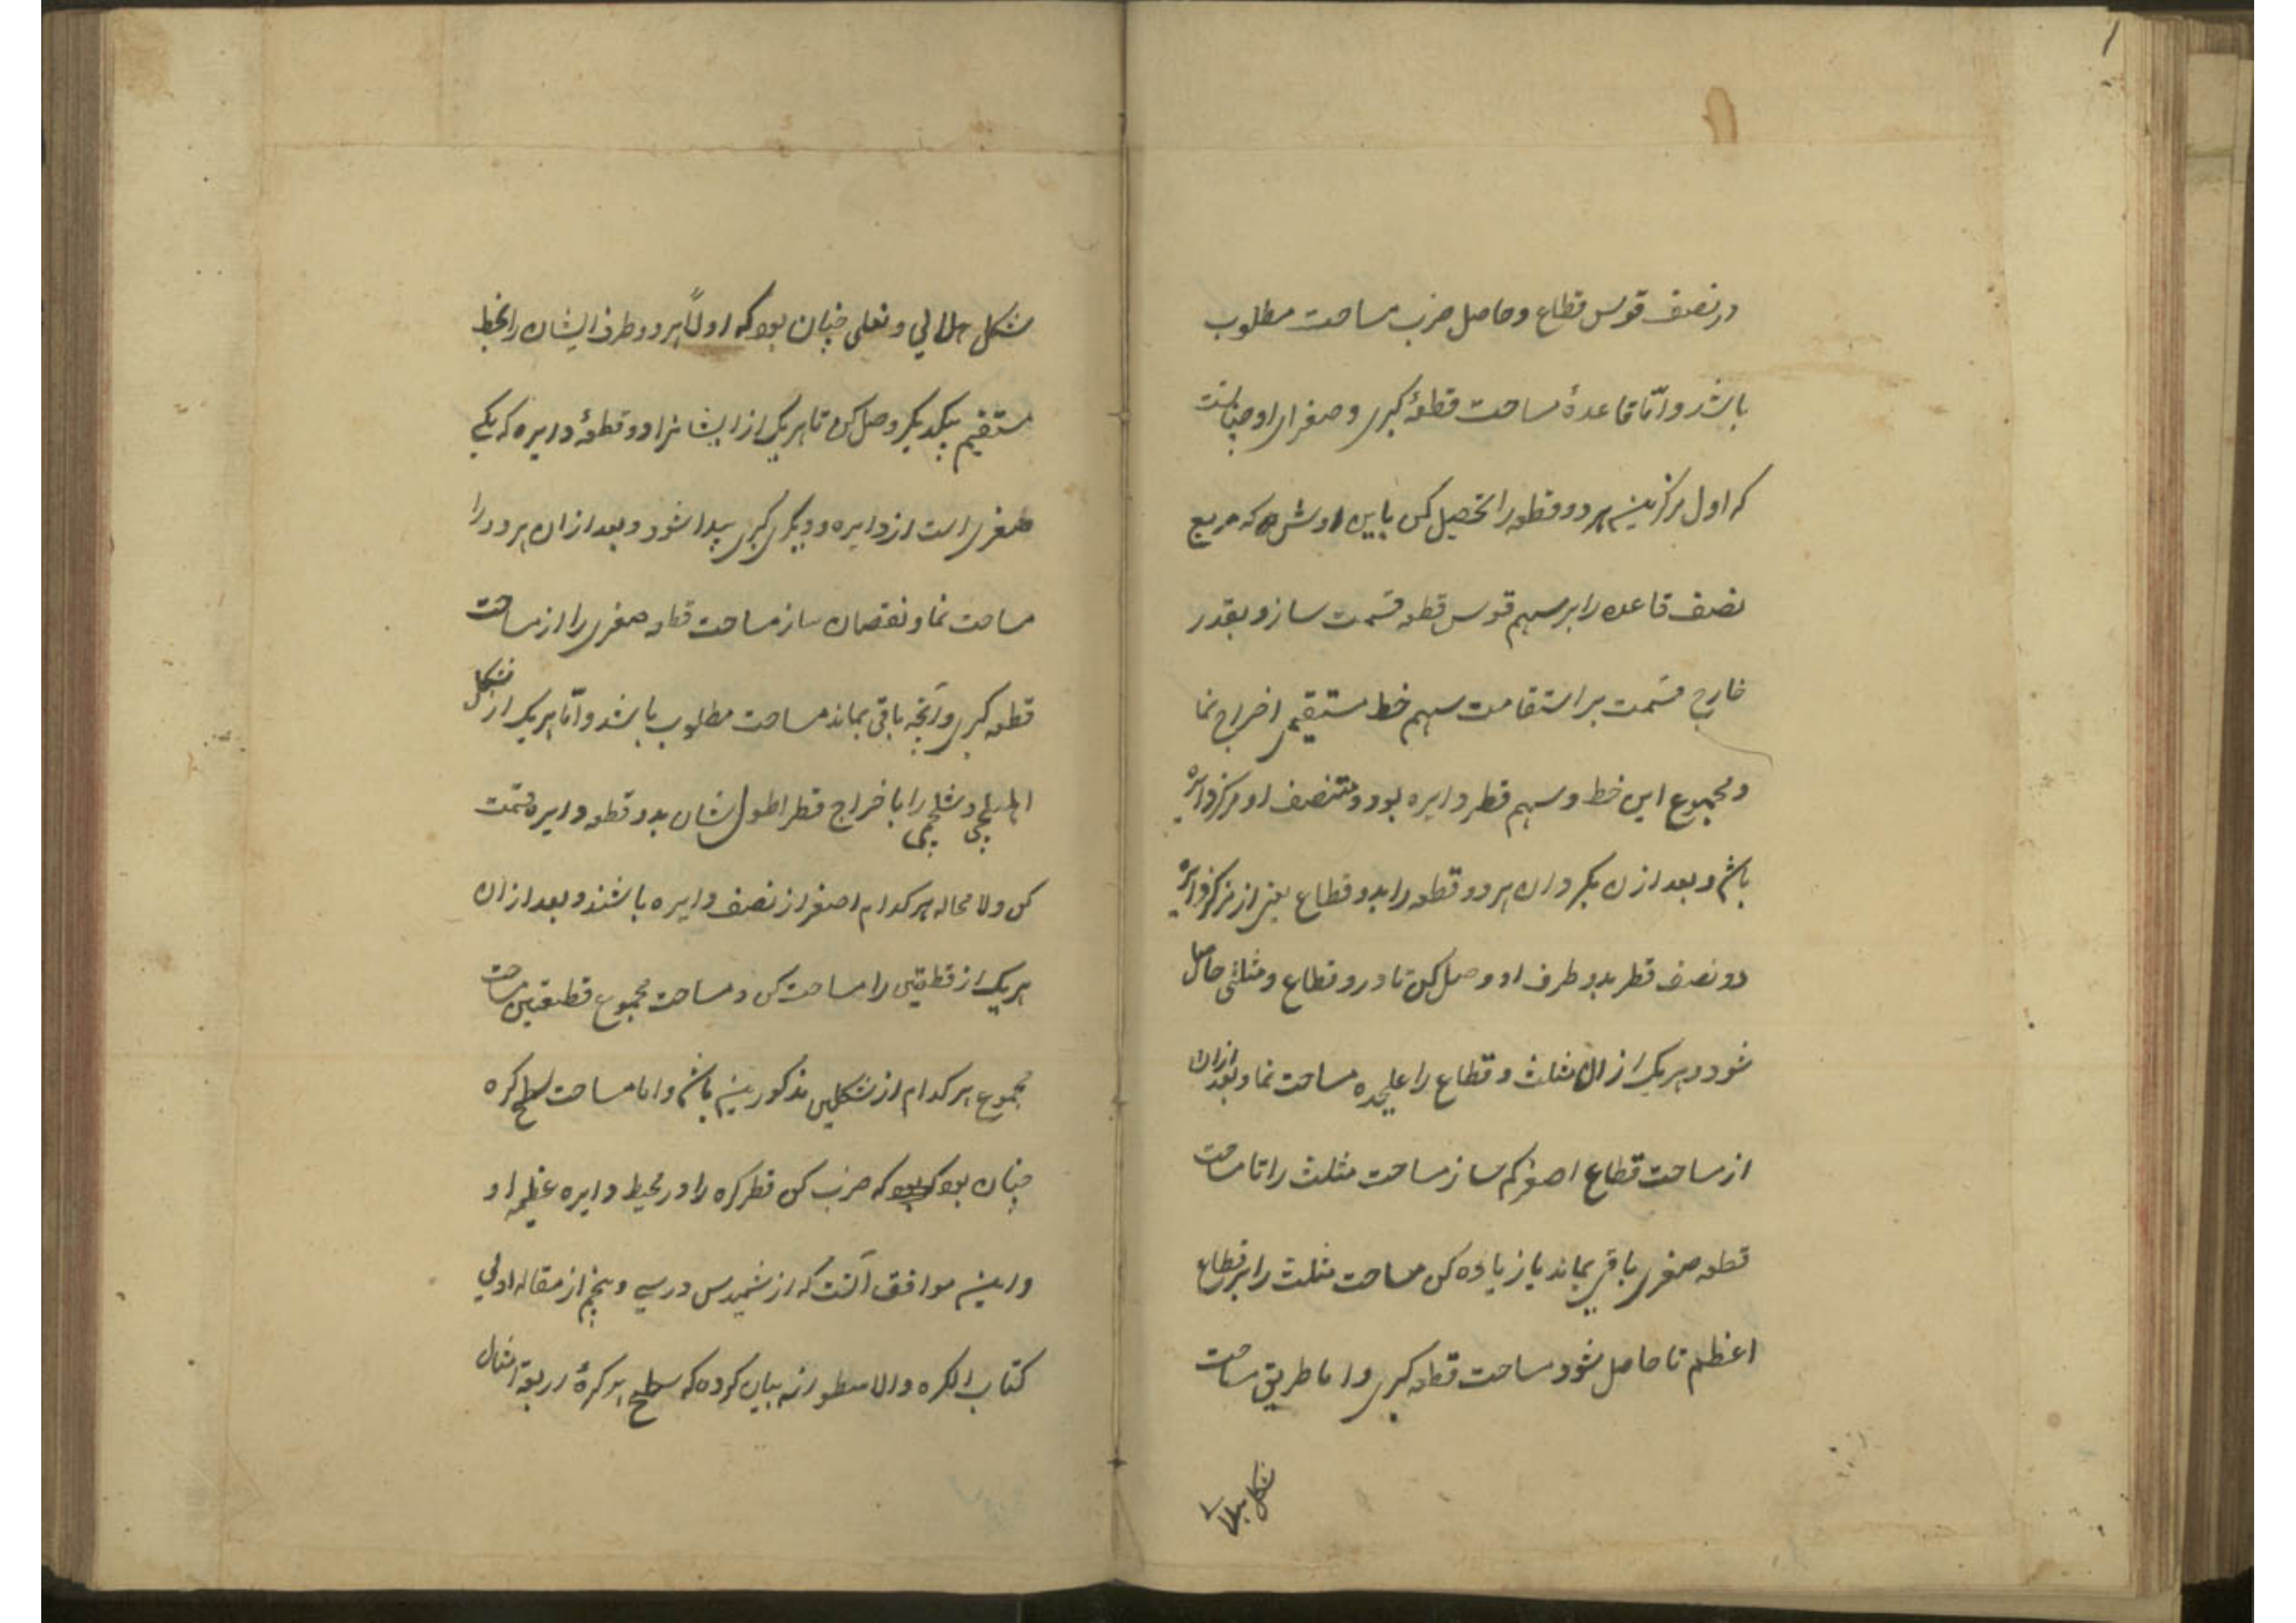 در نصف قوس قطاع و حاصل ضرب مساحت مطلوب
باشد و امّا قاعدهٔ مساحت قطعهٔ کبری و صغرای او چنانست
که اول مرکز هر دو قطعه را تحصیل کن باین روش که مربع
نصف قاعده را بر سهم قوس قطعه قسمت ساز و بقدر
خارج قسمت بر استقامت سهم خط مستقیمی اخراج نما
و مجموع این خط و سهم قطر دایره بود و منتصف او مرکز دایره
باشد و بعد از ان هر دو قطعه را بدو قطاع یعنی از مرکز دایره
دو نصف قطر بدو طرف او وصل کن تا دو قطاع و مثلثی حاصل
شود و هر یک از ان مثلث و قطاع را علیحده مساحت نما و بعد ازان
از مساحت قطاع اصغر کم ساز مساحت مثلث را تا مساحت
قطعه صغری باقی بماند یا زیاده کن مساحت مثلث را بر قطاع
اعظم تا حاصل شود مساحت قطعه کبری و اما طریق مساحت
شکل هلالی
شکل هلالی و نعلی چنان بود که اولاً هر دو طرف ایشان را بخط
مستقیم بیکدیگر وصل کن تا هر یک از ایشانرا دو قطعهٔ دایره که یکی
صغری است از دایره و دیگری کبری پیدا شود و بعد از ان هر دو را
مساحت نما و نقصان ساز مساحت قطعه صغری را از مساحت
قطعه کبری و آنچه باقی بماند مساحت مطلوب باشد و امّا هر یک از شکل
اهلیلجی و شلجمی را باخراج قطر اطول شان بدو قطعه دایره قسمت
کن و لا محاله هر کدام اصغر از نصف دایره باشند و بعد از ان
هر یک از قطعتین را مساحت کن و مساحت مجموع قطعتین مساحت
مجموع هر کدام از شکلین مذکورین باشد و اما مساحت سطح کره
چنان بود که ضرب کن قطر کره را در محیط دایره عظیمه او
و این موافق آنست که ارشمیدس در سی و پنجم از مقاله اولی
کتاب الکره و الاسطوانه بیان کرده که سطح هر کرهٔ اربعة امثال